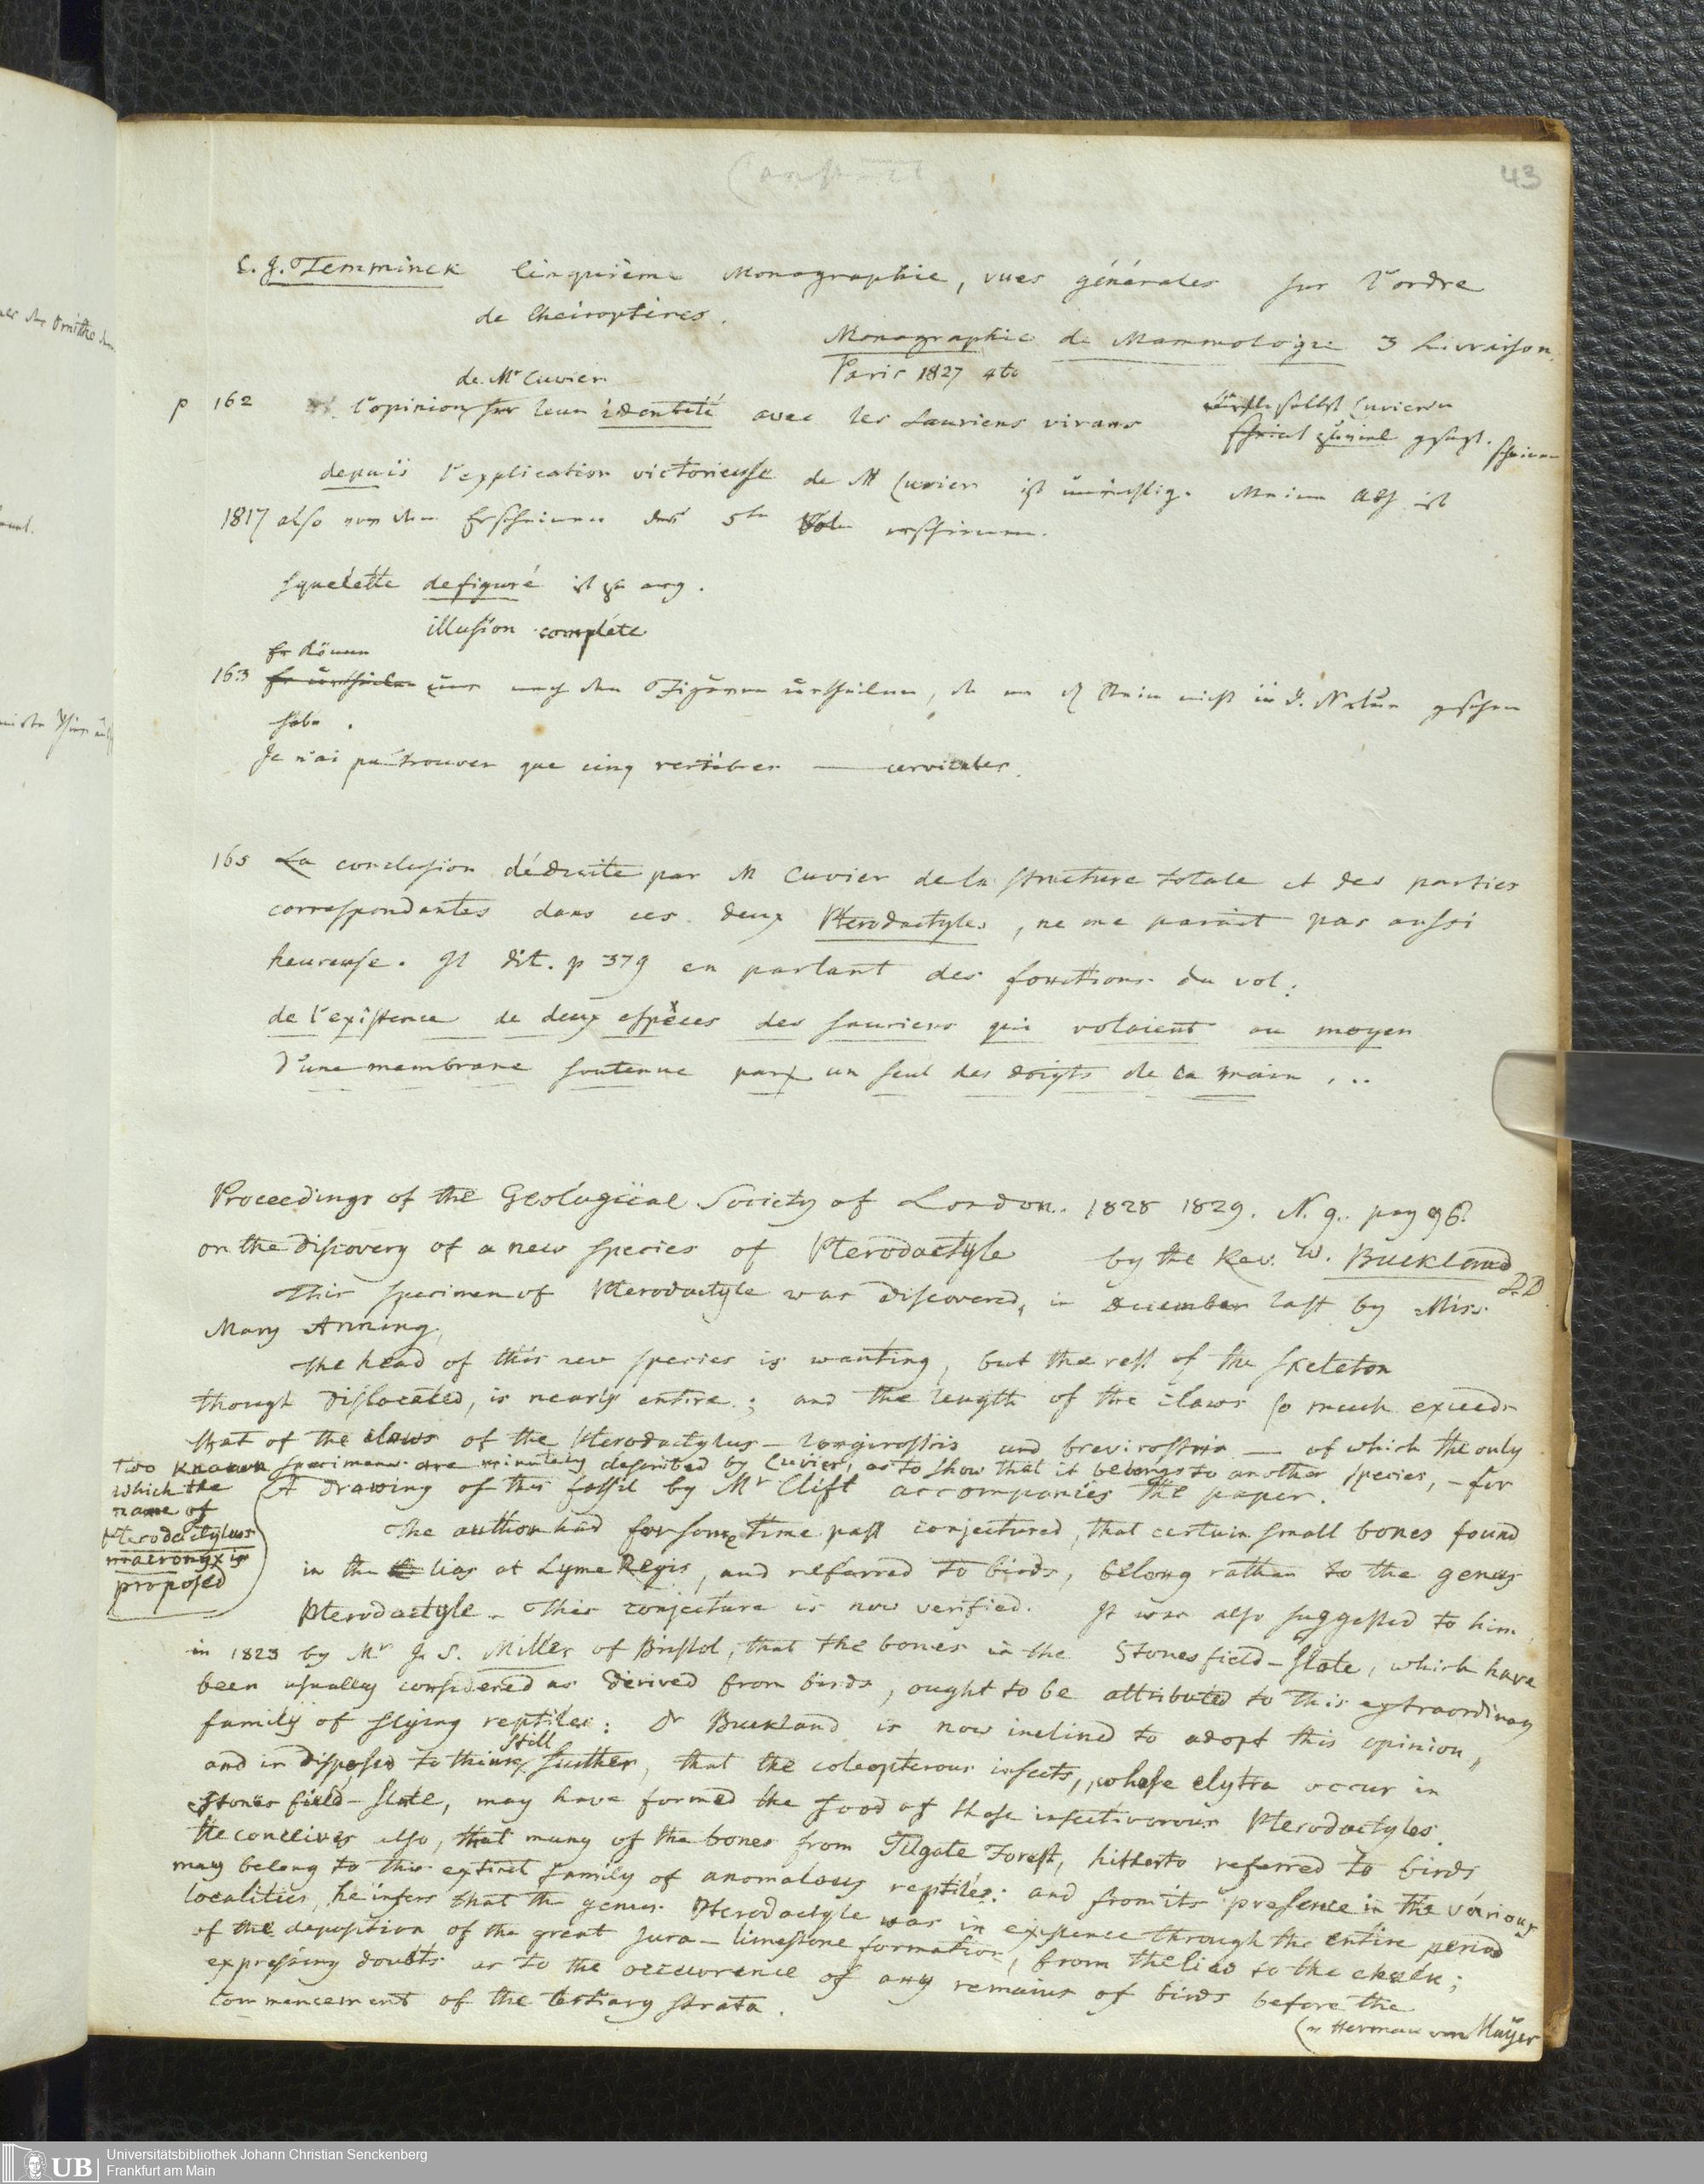 43
C. J. Temminck Cinquième Monographie, vues générales sur l'ordre
de Cheiroptères.
Monographie de Mammologie 3 Livraison
Paris 1827 4to
de Mr Cuvier
p 162 l'opinion sur leur identité avec les Sauriens vivans
selbst Cuviern
gesagt.
depuis l'explication victorieuse de M Cuvier ist unrichtig. Meine Abh ist
1817 also vor dem Erscheinen des 5tn Vol. erschienen.
squelétte defiguré ist zu arg.
illusion complète
Er könne
163 nur nach den Figuren urtheilen, da er d Stein nicht in d. Natur gesehen
habe.
Je n'ai pu trouver que cinq vertèbres — cervicales.
165 La conclusion déduite par M Cuvier de la structure totale et des parties
correspondantes dans ces deux Pterodactyles, ne me parait pas aussi
heureuse. Il dit. p 379 en parlant des fonctions du vol:
de l'existence de deux espèces des sauriens qui volaient au moyen
d'une membrane soutenue par un seul des doigts de la main ...
Proceedings of the Geological Society of London. 1828 1829. N. 9. pag 96.
on the discovery of a new species of Pterodactyle by the Rev. W. Buckland
D.D.
This specimen of Pterodactyle was discovered, in December last by Miss
Mary Anning.
The head of this new species is wanting, but the rest of the skeleton
though dislocated, is nearly entire; and the length of the claws so much exceeds
that of the claws of the Pterodactylus – longirostris and brevirostris — of which the only
two known specimens are minutely described by Cuvier, as to show that it belongs to another species, – for
which the
name of
Pterodactylus
macronyx is
proposed
A drawing of this fossil by Mr Clift accompanies the paper.
The author had for some time past conjectured, that certain small bones found
in the lias at Lyme Regis, and referred to birds, belong rather to the genus
Pterodactyle. This conjecture is now verified. It was also suggested to him,
in 1823 by Mr J. S. Miller of Bristol, that the bones in the Stonesfield-slate, which have
been usually considered as derived from birds, ought to be attributed to this extraordinary
family of flying reptiles: Dr Buckland is now inclined to adopt this opinion,
still
and is disposed to think further, that the coleopterous insects, whose elytra occur in
Stonesfield-slate, may have formed the food of those insectivorous Pterodactyles.
He conceives also, that many of the bones from Tilgate Forest, hitherto referred to birds
may belong to this extinct family of anomalous reptiles: and from its presence in the various
localities, he infers that the genus Pterodactyle was in existence through the entire period
of the deposition of the great Jura-limestone formation, from the lias to the chalk;
expressing doubts as to the occurence of any remains of birds before the
commencement of the tertiary strata.
Herman von Meÿer
UB Universitätsbibliothek Johann Christian Senckenberg
Frankfurt am Main